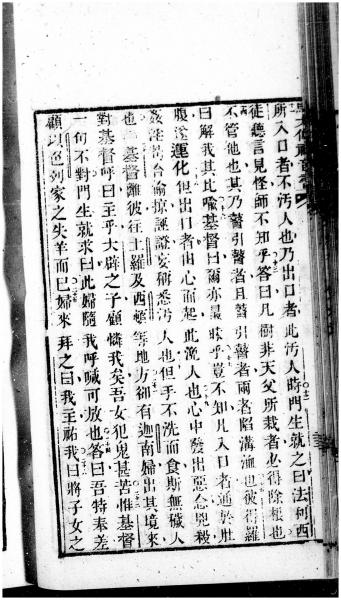 所入口者不汚人也乃出口者此汚人時門生就之曰法利西
徒聽言見怪師不知乎答曰凡樹非天父所栽者必得除根也
不管他也其乃瞽引瞽者且瞽引瞽者兩者陷溝洫也彼得羅
曰解我其比喩基督曰爾亦昧乎豈不知凡入口者通於肚
腹遂運化但出口者由心而起此汚人也心中發出惡念兇殺
姦淫苟合偷掠誣證妄稱悉汚人也但手不洗而食斯無穢人
也基督離彼往土羅及西頓等地方卻有迦南婦出其境來
對基督呼曰主乎大辟之子顧憐我矣吾女犯鬼甚苦惟基督
一句不對門生就求曰此婦隨我呼喊可放也答曰吾特奉差
顧以色列家之失羊而已婦來拜之曰我主祐我曰將子女之